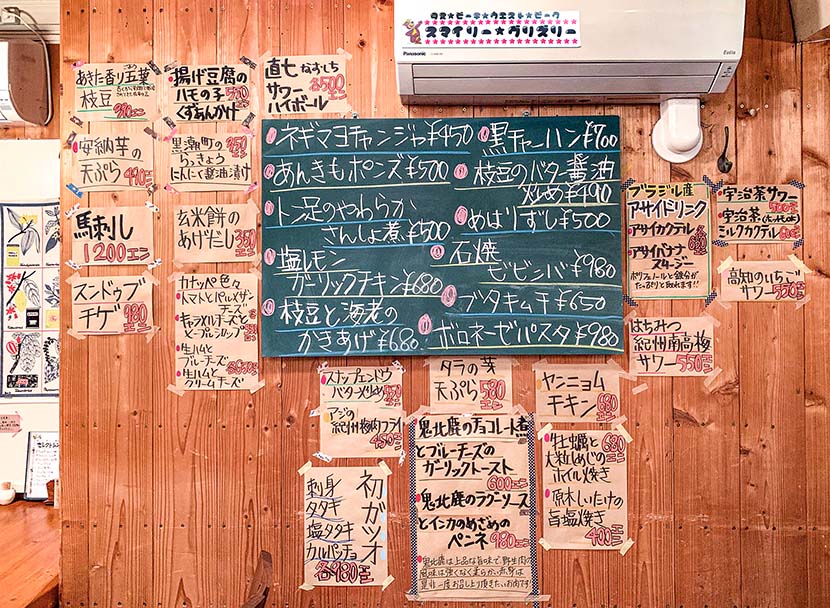 タス★ビーチ★ウエスト★ビーク
スマイリー★グリズリー
Panasonic
Eolia
あきた香り五葉
枝豆
揚げ豆腐の
ハモの子
くずあんかけ
直七 なおしち
サワー
ハイボール
各500エン
安納芋の
天ぷら
490エン
黒潮町の
らっきょう
にんにく醤油漬け
350エン
馬刺し
1200エン
玄米餅の
あげだし
350エン
スンドゥブ
チゲ
980エン
カナッペ色々
トマトとパルメザン
チーズ
キャラメルチーズと
メープルシロップ
生ハムと
ブルーチーズ
生ハムと
クリームチーズ
ネギマヨチャンジャ¥450
あんきもポンズ¥500
トン足のやわらか
さんしょ煮¥500
塩レモン
ガーリックチキン¥680
枝豆と海老の
かきあげ¥680
黒チャーハン¥700
枝豆のバター醤油
炒め¥490
めはりずし¥500
石焼
ビビンバ¥980
ブタキムチ¥650
ボロネーゼパスタ¥980
ブラジル産
アサイドリンク
アサイカクテル
アサイバナナ
スムージー
ポリフェノールと鉄分が
たっぷりと取れます!!
宇治茶サワー
宇治茶
ミルクカクテル
高知のいちご
サワー550エン
はちみつ
紀州南高梅
サワー550エン
スナップエンドウ
バター炒め
アジの
紀州梅肉フライ
450エン
タラの芽
天ぷら580エン
ヤンニョム
チキン680エン
初ガツオ
刺身
タタキ
塩タタキ
カルパッチョ
各980エン
鬼北鹿のチョコレート煮
とブルーチーズの
ガーリックトースト
600エン
鬼北鹿のラグーソース
とイカのめざめの
ペンネ980エン
鬼北鹿は上品な旨味で、野生肉の
風味は強くなく柔らかい赤身は
是非一度お召し上り頂きたいお肉です!
牡蠣と
大粒しめじの
ホイル焼き
680エン
原木しいたけの
旨塩焼き
400エン